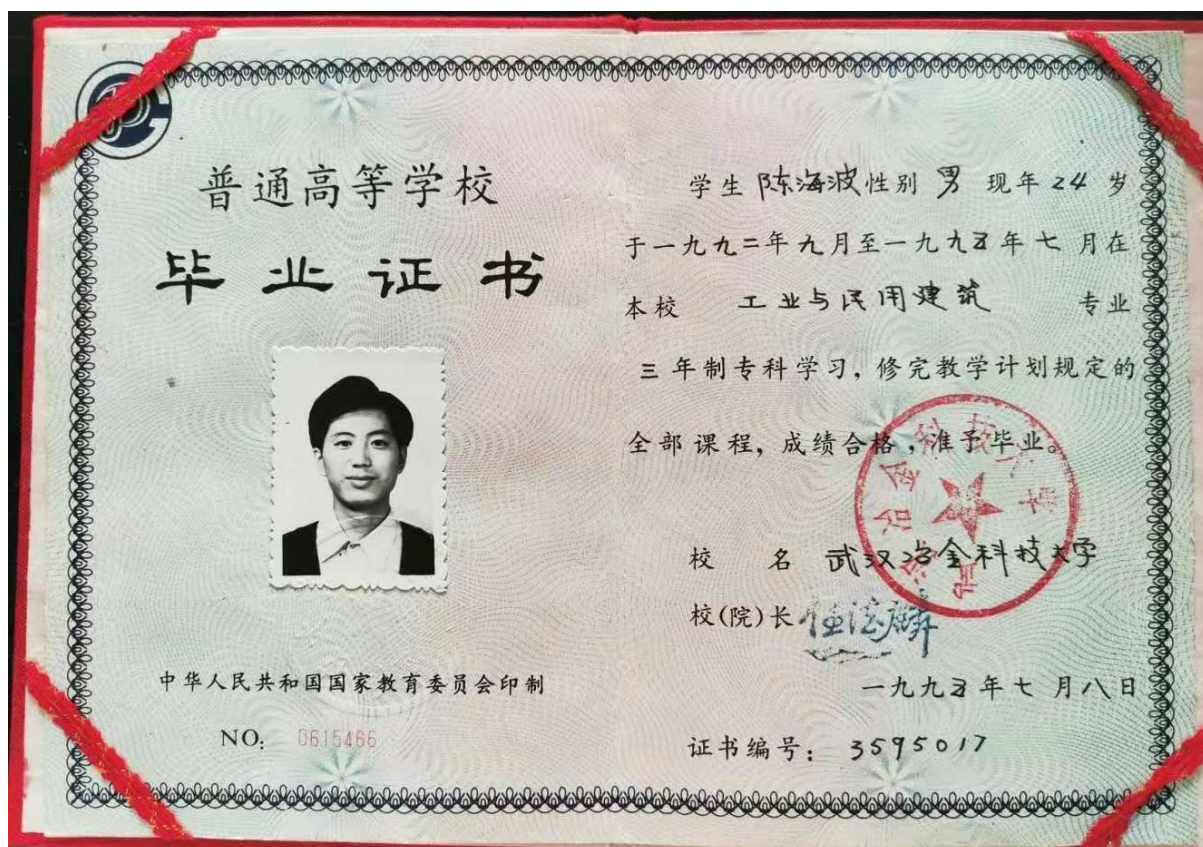 普通高等学校
毕业证书
中华人民共和国国家教育委员会印制
NO: 0615466
学生 陈海波 性别 男 现年 24 岁
于一九九二年九月至一九九五年七月在
本校 工业与民用建筑 专业
三年制专科学习，修完教学计划规定的
全部课程，成绩合格，准予毕业。
校 名 武汉冶金科技大学
校(院)长
一九九五年七月八日
证书编号： 3595017
武汉冶金科技大学